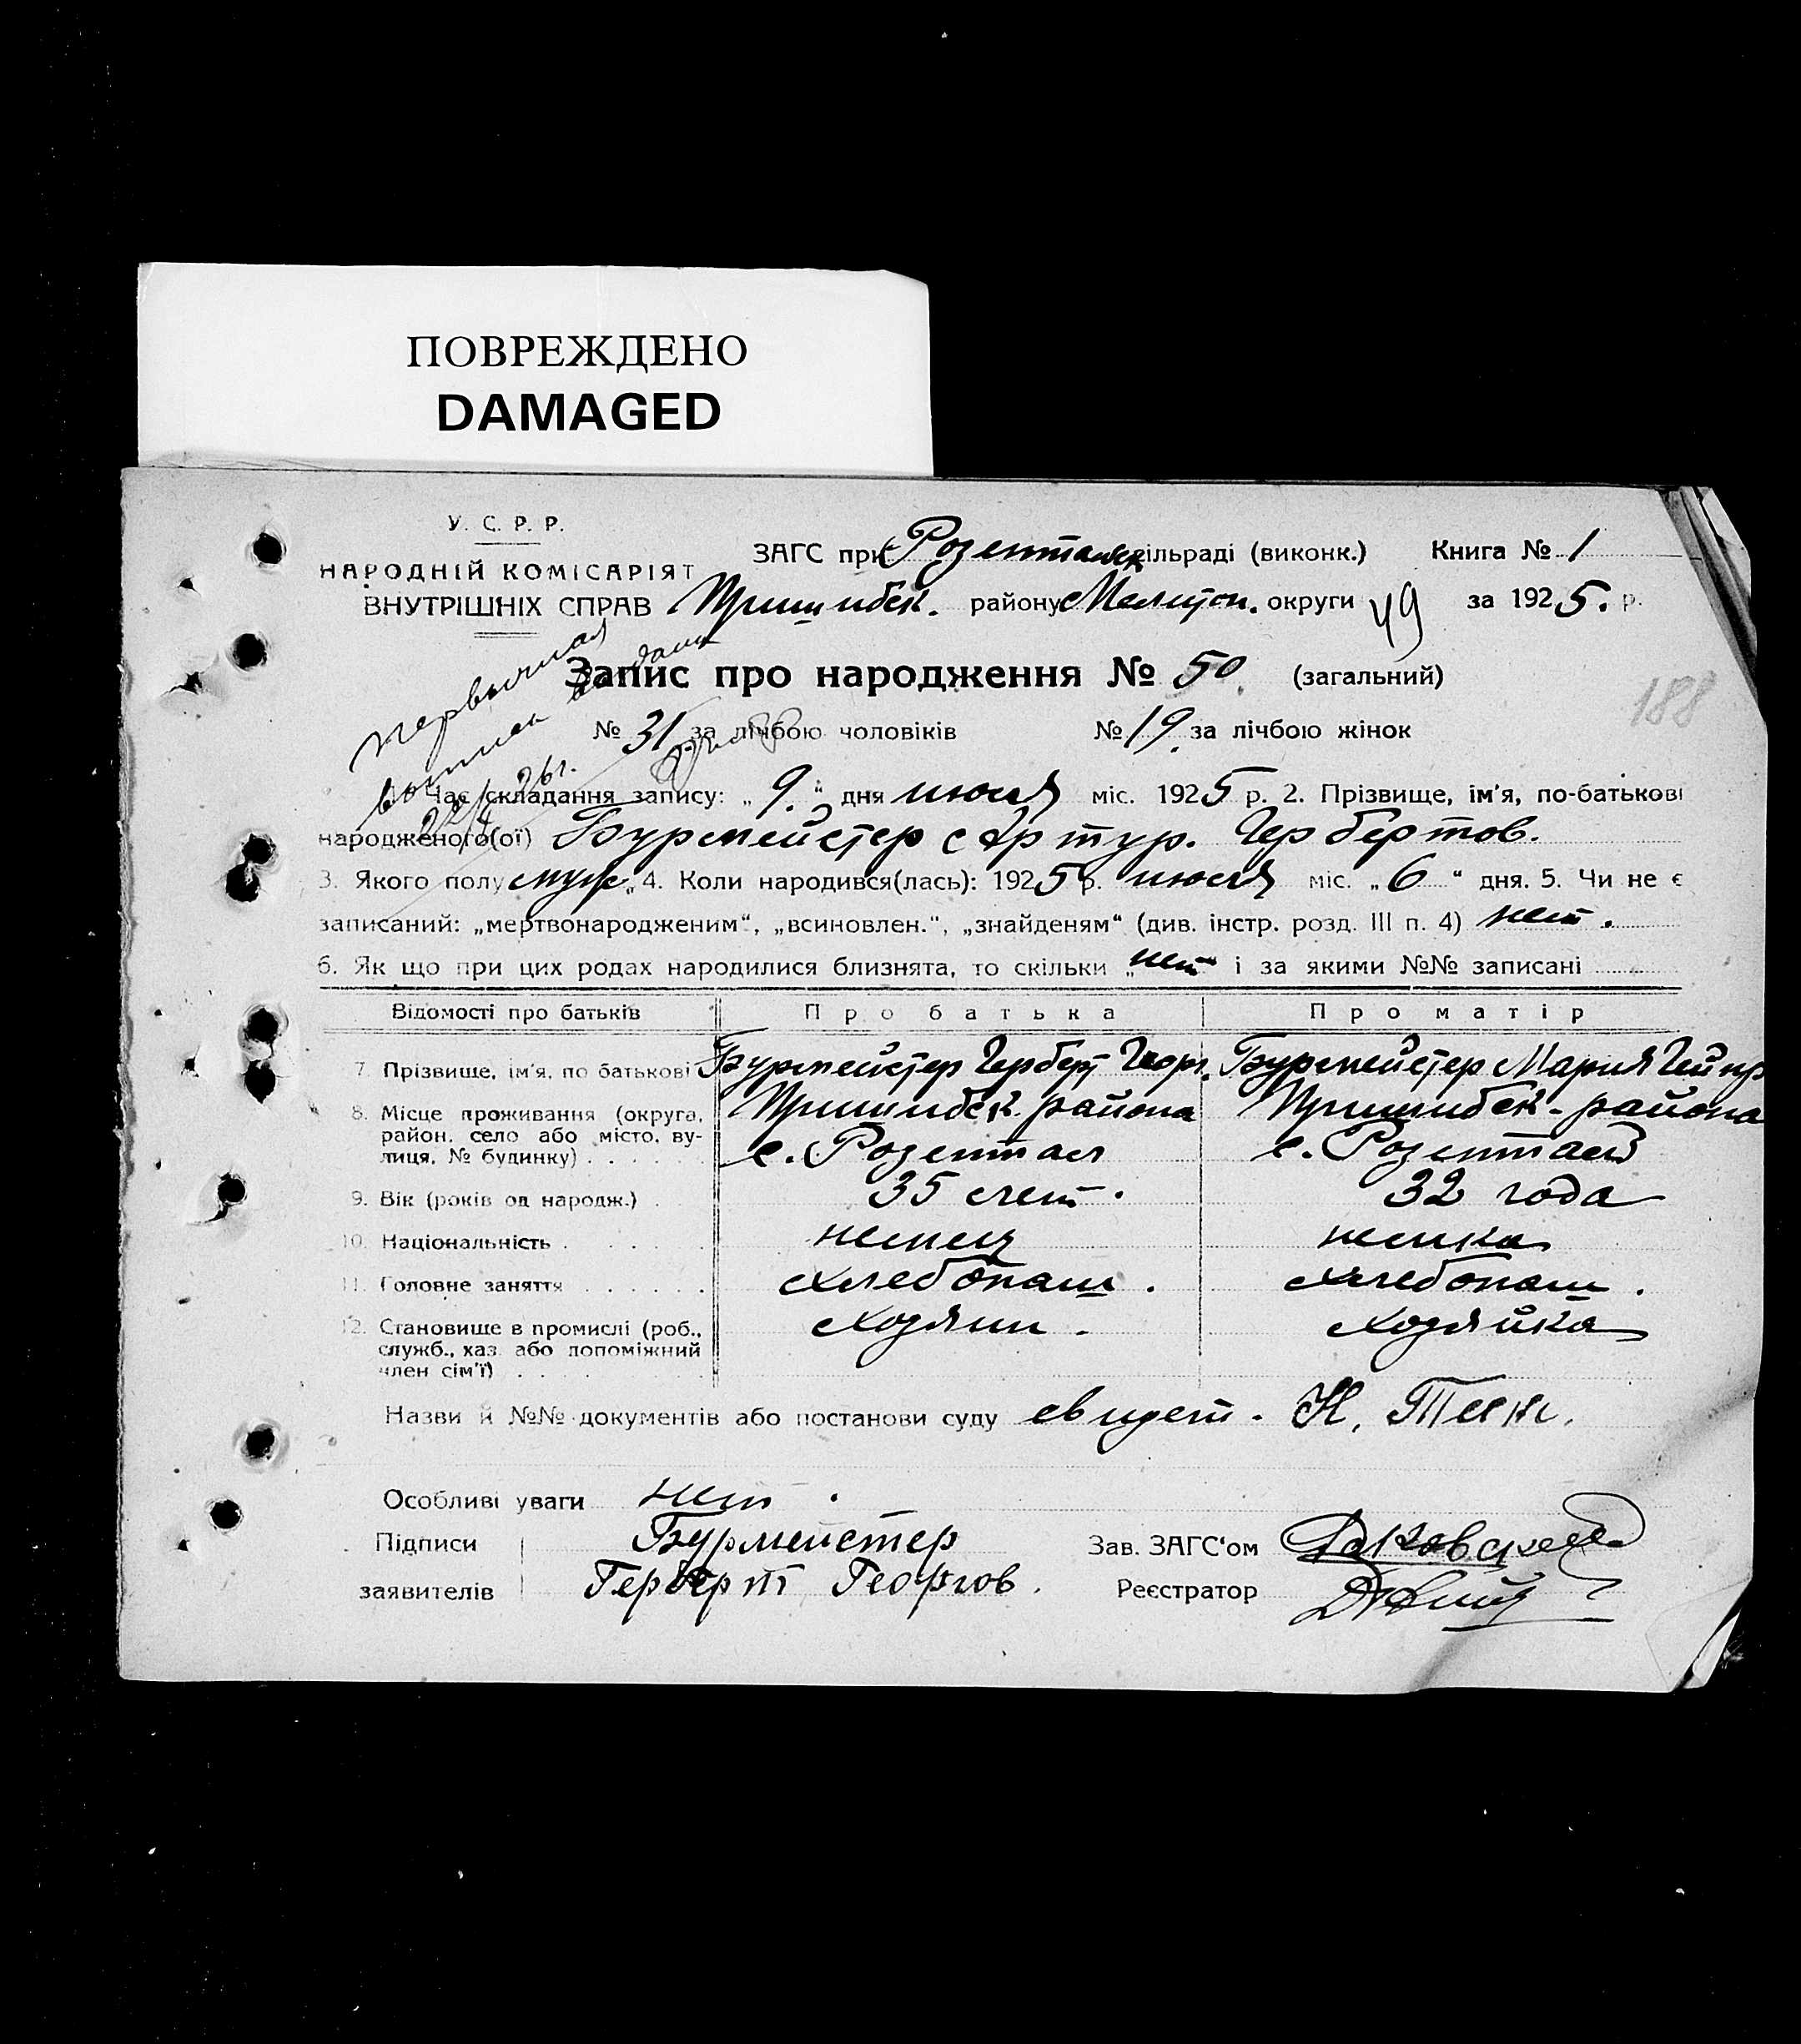 ПОВРЕЖДЕНО
DAMAGED
У. С. Р. Р.
НАРОДНІЙ КОМІСАРІЯТ
ВНУТРІШНІХ СПРАВ
ЗАГС при Розентальск сільраді (виконк.) Книга № 1
Пришибск. району Мелитоп. округи 49 за 1925. р.
первичная
выписка выдана
22/I 26 г.
Запис про народження № 50. (загальний)
188
№ 31 за лічбою чоловіків № 19. за лічбою жінок
Час складання запису: „ 9. “ дня июля міс. 1925 р. 2. Прізвище, ім'я, по-батькові
народженого(ої) Бурмейстер Артур. Гербертов.
3. Якого полу муж. 4. Коли народився(лась): 1925 р. июля міс. „ 6 “ дня. 5. Чи не є
записаний: „мертвонародженим“, „всиновлен.“, „знайденям“ (див. інстр. розд. III п. 4) нет.
6. Як що при цих родах народилися близнята, то скільки „ нет “ і за якими №№ записані
Відомості про батьків Про батька Про матір
7. Прізвище, ім'я, по батькові Бурмейстер Герберт Георг. Бурмейстер Мария Гейнр
8. Місце проживання (округа, Пришибск. района Пришибск. района
район, село або місто, ву-
лиця, № будинку) с. Розентал с. Розентал
9. Вік (років од народж.) 35 лет. 32 года
10. Національність немец немка
11. Головне заняття хлебопаш. хлебопаш.
12. Становище в промислі (роб., хозяин. хозяйка
служб., хаз. або допоміжний
член сім'ї)
Назви й №№ документів або постанови суду свидет. Н.
Особливі уваги нет.
Підписи Бурмейстер Зав. ЗАГС'ом
заявителів Герберт Георгов. Реєстратор